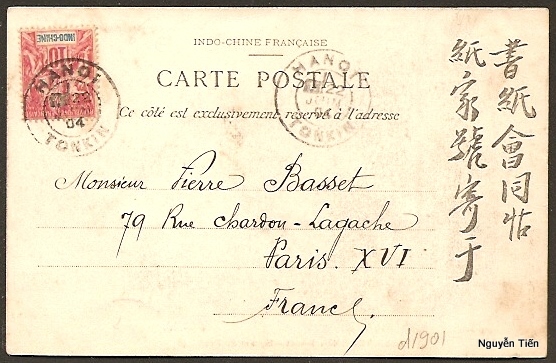 INDO-CHINE
10
INDO-CHINE FRANÇAISE
CARTE POSTALE
Ce côté est exclusivement réservé à l'adresse
HANOI
TONKIN
04
HANOI
JUIN
04
TONKIN
Monsieur Pierre Basset
79 Rue Chardon-Lagache
Paris. XVI
France.
書紙會同
紙家號寄于
d1901
Nguyễn Tiến